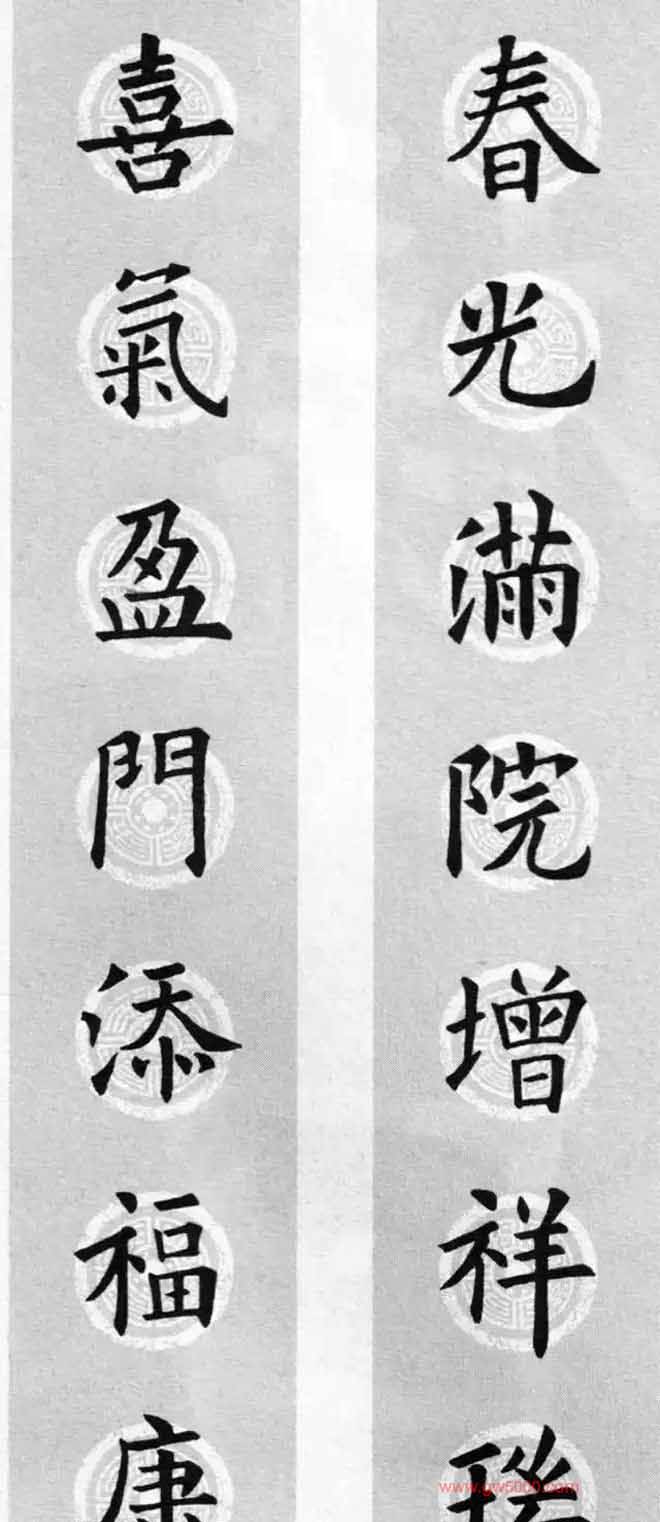 春光滿院增祥瑞
喜氣盈門添福康
www.gw5000.com